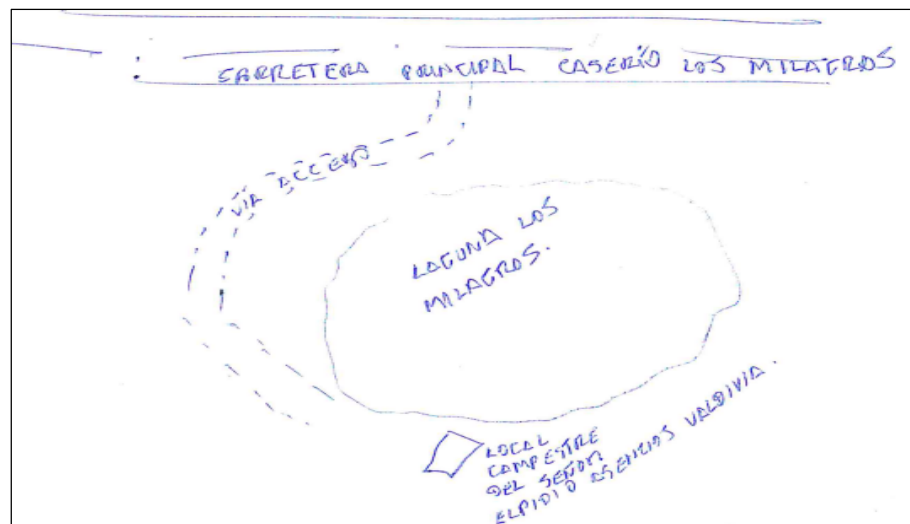 CARRETERA PRINCIPAL CASERÍO LOS MILAGROS
VÍA ACCESO
LAGUNA LOS
MILAGROS.
LOCAL
CAMPESTRE
DEL SEÑOR
ELPIDIO ASENCIOS VALDIVIA.